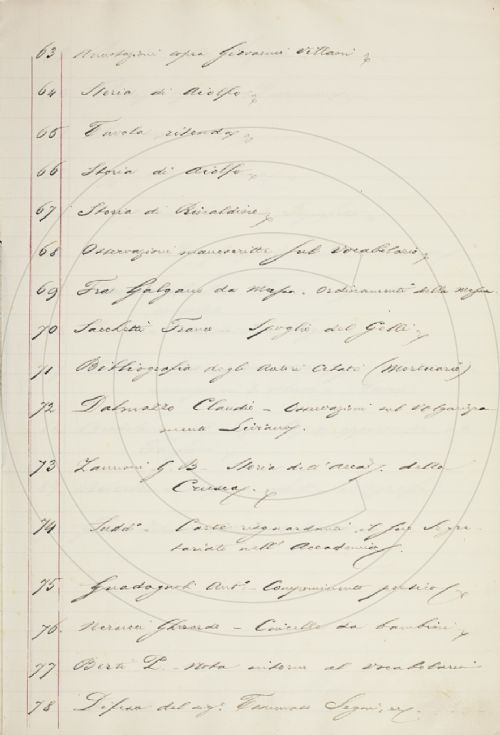 63 Annotazioni sopra Giovanni Villani
64 Storia di Aiolfo
65 Tavola ritonda
66 Storia di Aiolfo
67 Storia di Rinaldino
68 Osservazioni manoscritte sul vocabolario
69 Fra Galgano da Massa. Ordinamenti della messa
70 Sacchetti Franco - Spoglio del Gelli
71 Bibliografia degli Autori Citati (Moreniana)
72 Dalmazzo Claudio - Osservazioni sul Volgarizza
mento Liviano.
73 Zannoni G. B. Storia dell'Accad. della
Crusca.
74 Sudd.º - Carte risguardanti il suo Segre
tariato nell'Accademia.
75. Guadagnoli Ant.º Componimento
76. Nerucci Gherardo - Cincelle da bambini
77 Berti P. - Nota intorno al vocabolario
78 Difesa del sig.r Tommaso Segni,